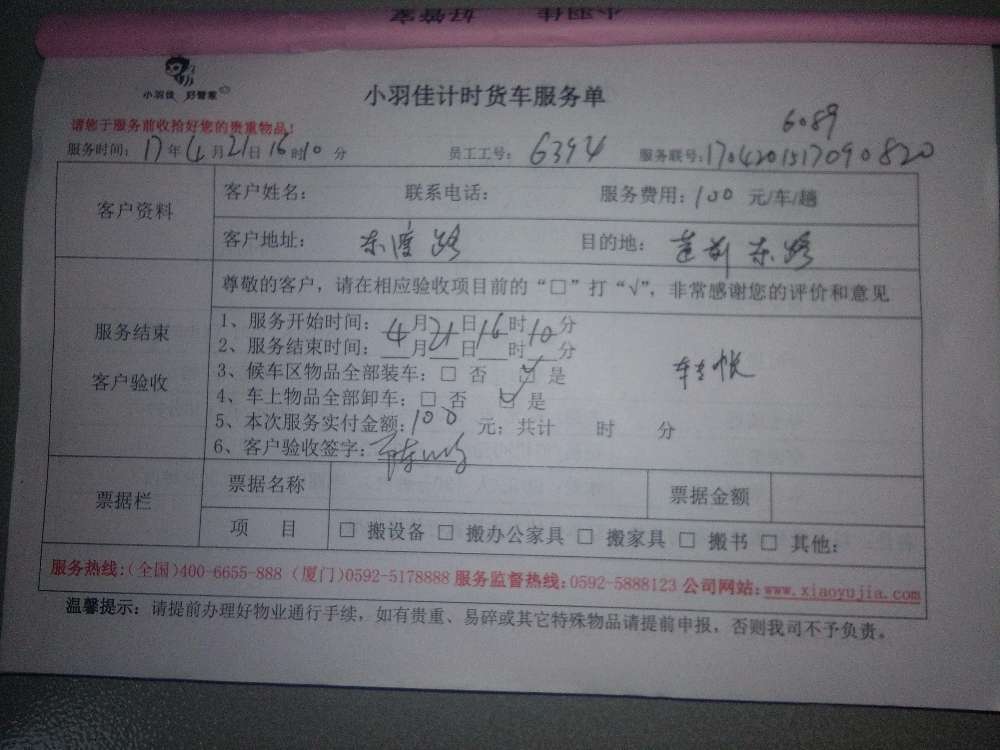 小羽佳 好管家
小羽佳 好管家
小羽佳计时货车服务单
6089
请您于服务前收拾好您的贵重物品！
服务时间：17年4月21日16时10分 员工工号：6394 服务联号：1704201517090820
客户资料
客户姓名： 联系电话： 服务费用：100 元/车/趟
客户地址： 东渡路 目的地： 莲前东路
服务结束
客户验收
尊敬的客户，请在相应验收项目前的“□”打“√”，非常感谢您的评价和意见
1、服务开始时间：4月21日16时10分
2、服务结束时间：___月___日___时___分
3、候车区物品全部装车：□ 否 ☑ 是
4、车上物品全部卸车：□ 否 ☑ 是
5、本次服务实付金额：100 元；共计 时 分
6、客户验收签字：
票据栏
票据名称 票据金额
项 目 □ 搬设备 □ 搬办公家具 □ 搬家具 □ 搬书 □ 其他：
服务热线：(全国)400-6655-888 (厦门)0592-5178888 服务监督热线：0592-5888123 公司网站：www.xiaoyujia.com
温馨提示：请提前办理好物业通行手续，如有贵重、易碎或其它特殊物品请提前申报，否则我司不予负责。